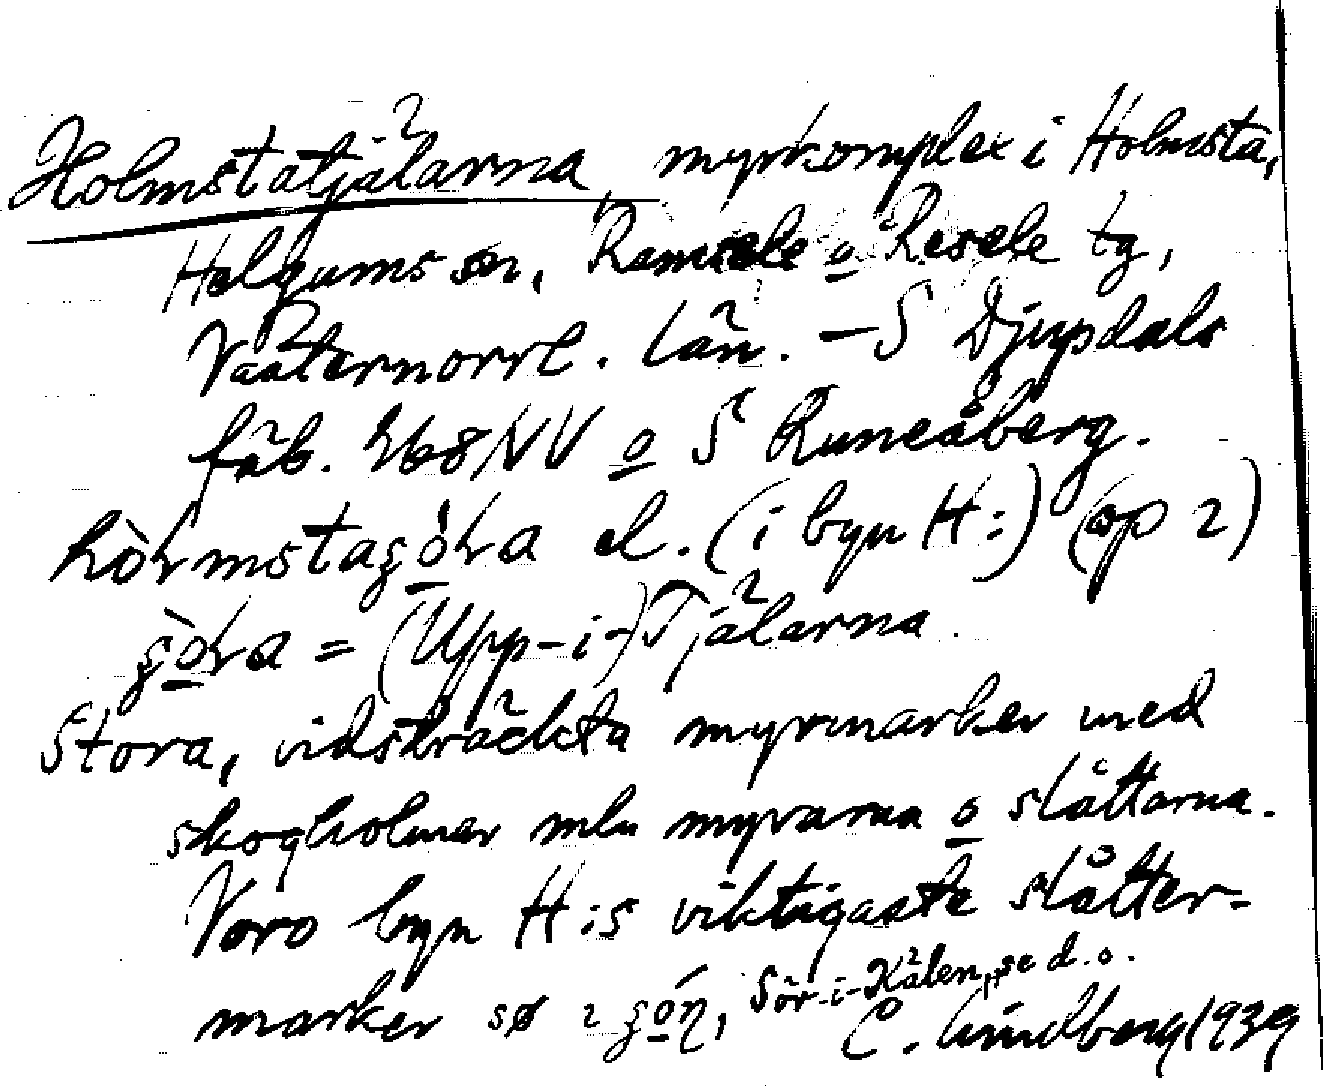 Holmstatjälarna, myrkomplex i Holmsta,
Helgums sn, Ramsele o Resele tg,
Västernorrl. län. – S Djupdals
fäb. 268 NV o S Runeåberg.
el. (i byn H:) (op 2)
= (Upp-i-)Tjälarna.
Stora, vidsträckta myrmarker med
skogholmar mln myrarna o slåttarna.
Voro byn H:s viktigaste slåtter-
marker Sör-i-Kälen, se d. o.
C. Lindberg 1939